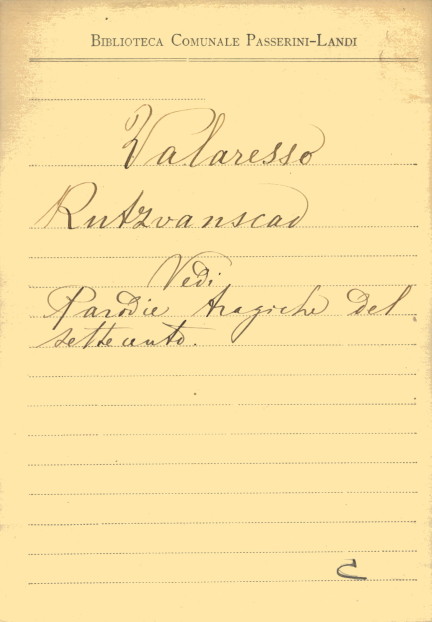 BIBLIOTECA COMUNALE PASSERINI-LANDI
Valaresso
Rutzvanscad
Vedi
Parodie tragiche del
settecento.
C